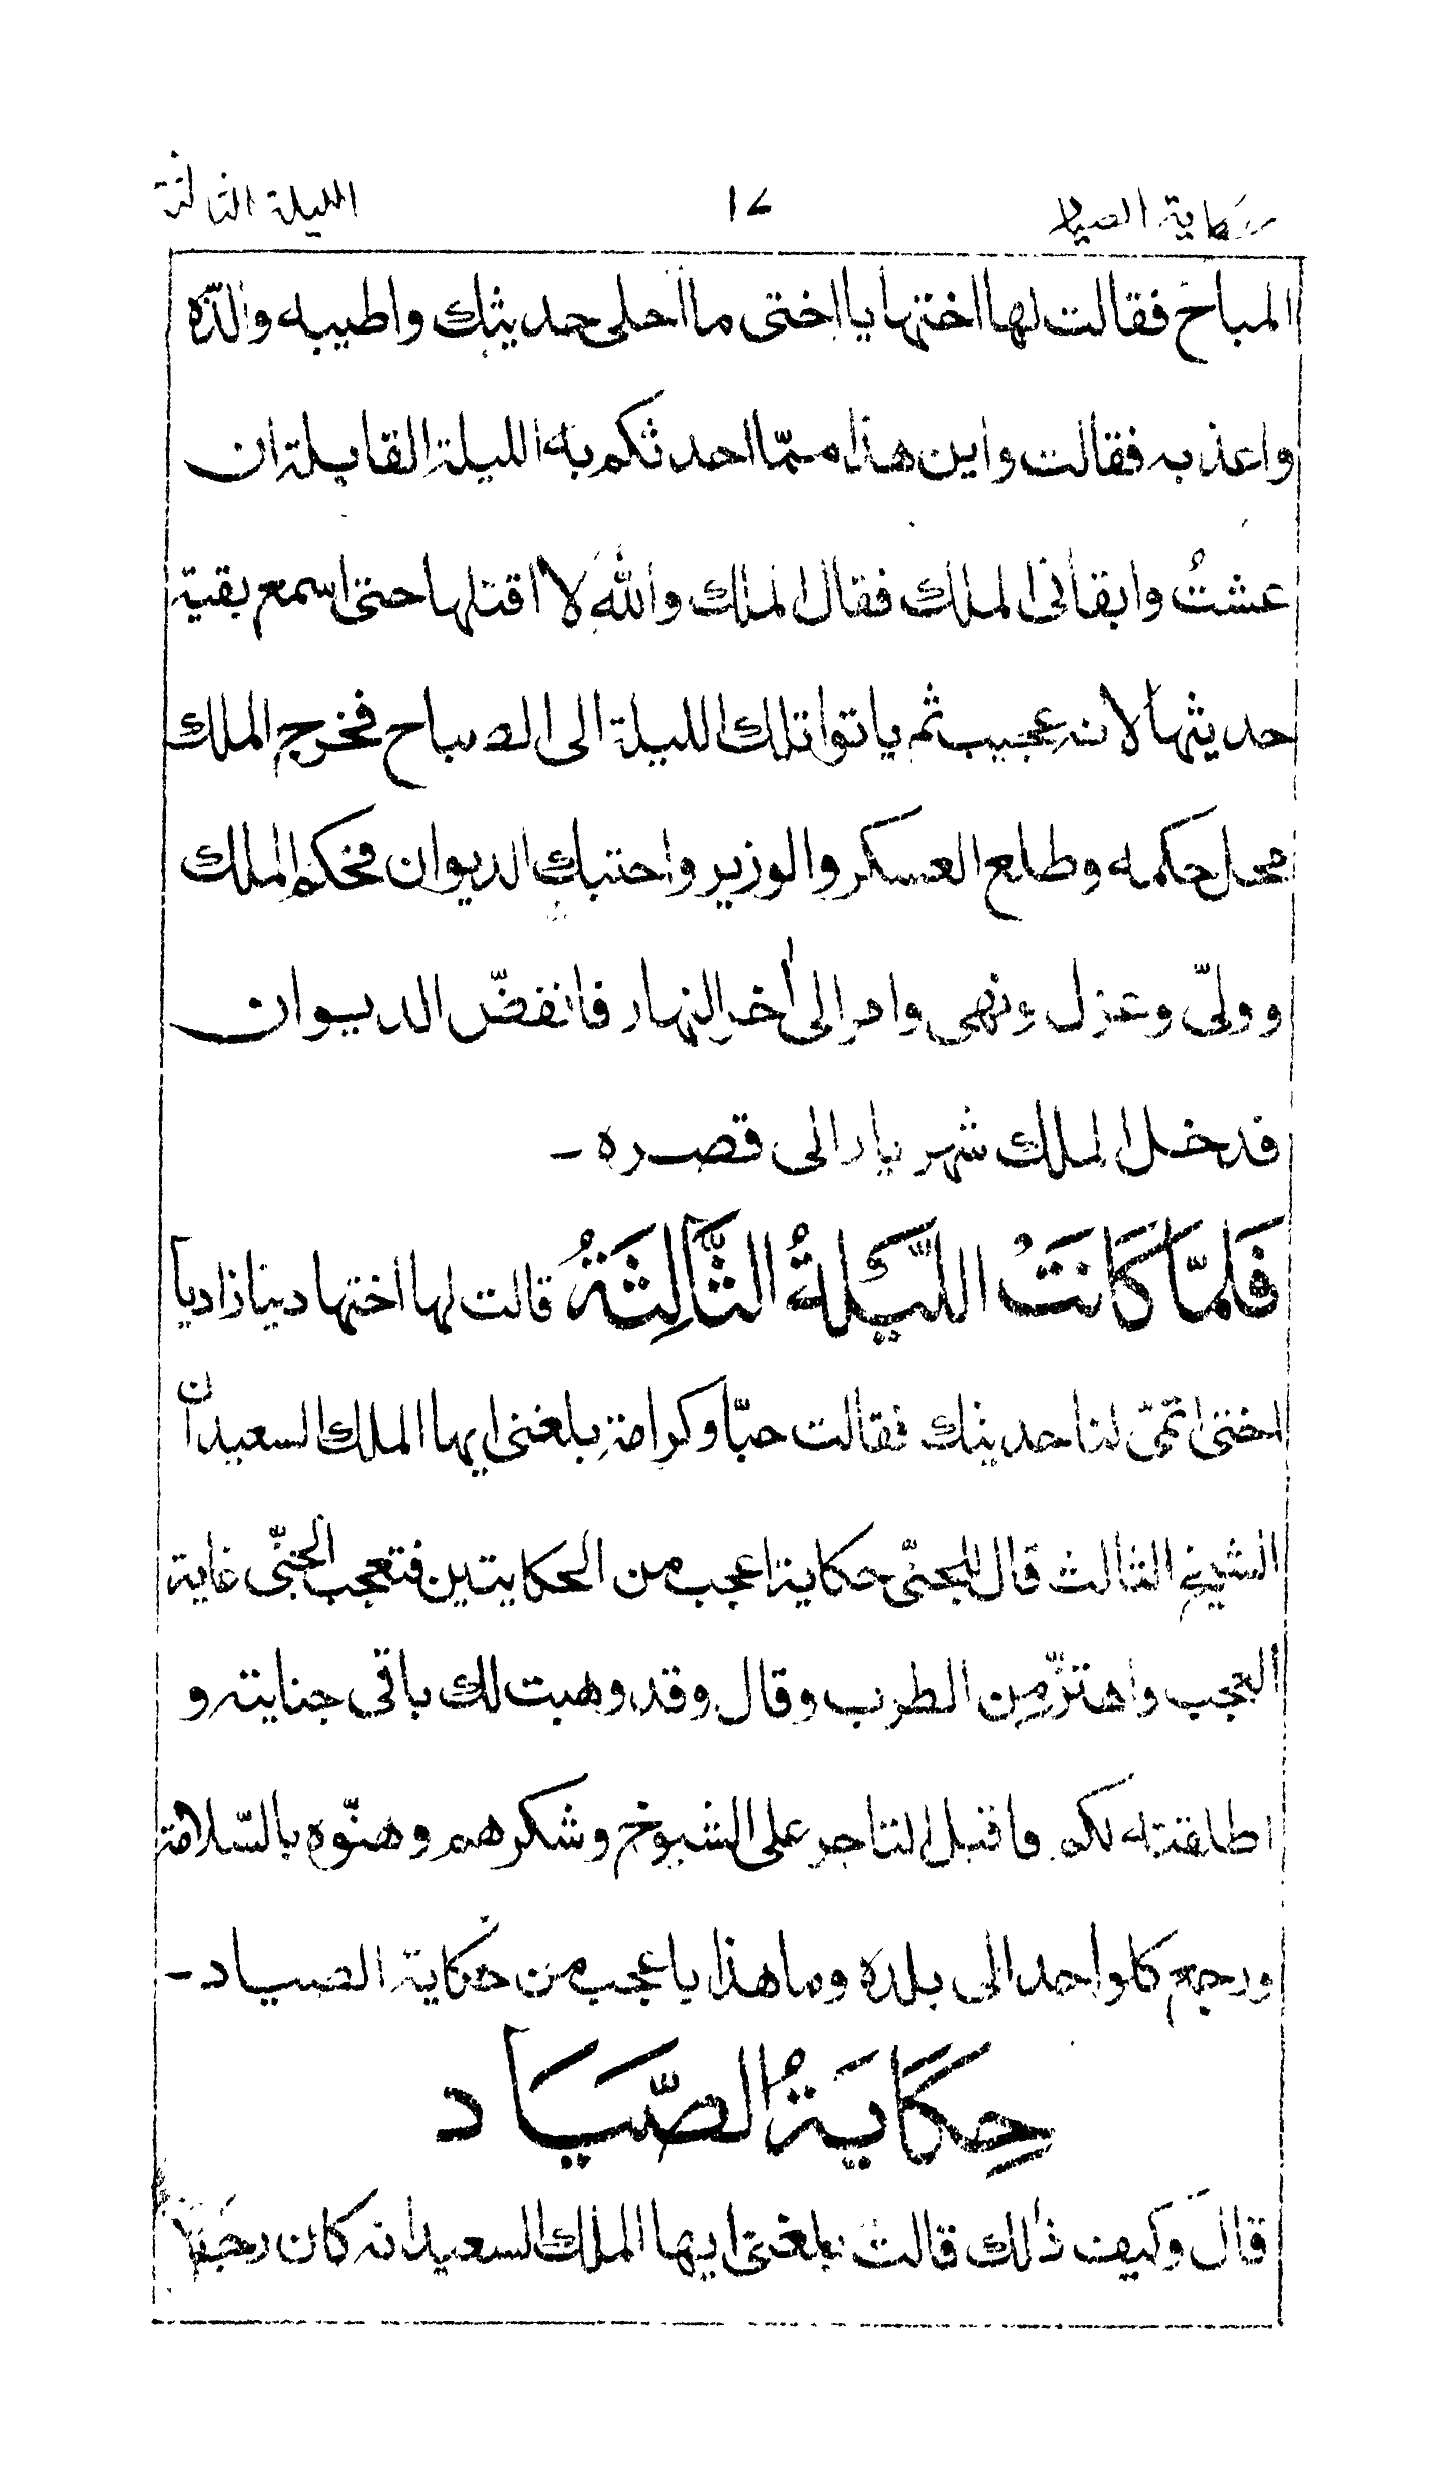 حكاية الصياد ١٧ الليلة الثالثة
المباح فقالت لها اختها يا اختى ما احلى حديثك واطيبه والذّه
واعذبه فقالت واين هذا ممّا احدثكم به الليلة القابلة ان
عشتُ وابقانى الملك فقال الملك والله لا اقتلها حتى اسمع بقية
حديثها لانه عجيب ثم باتوا تلك الليلة الى الصباح فخرج الملك
محل حكمه وطلع العسكر والوزير واحتبك الديوان فحكم الملك
وولىّ وعزل ونهى وامر الى أخر النهار فانفضّ الديوان
فدخل الملك شهريار الى قصره -
فَلَمَّا كَانَتْ اللَّيْلَةُ الثَّالِثَةُ قالت لها اختها دينازاد يا
اختى اتمّى لنا حديثك فقالت حبّا وكرامة بلغنى ايها الملك السعيد ان
الشيخ الثالث قال للجنّى حكاية اعجب من الحكايتين فتعجب الجنّى غاية
العجب واهتزّ من الطرب وقال وقد وهبت لك باقى جنايته و
اطلقته لكم فاقبل التاجر على الشيوخ وشكرهم وهنّوه بالسّلامة
ورجع كلواحد الى بلده وما هذا باعجب من حكاية الصياد -
حِكَايَةُ الصَّيَاد
قال وكيف ذلك قالت بلغنى ايها الملك السعيد انه كان رجلا